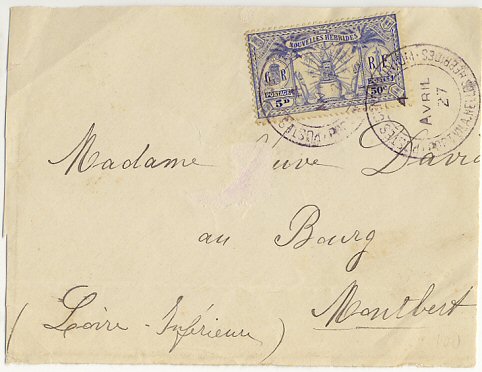 NOUVELLES HÉBRIDES
G R R F
POSTAGE POSTES
5D 50c
4
AVRIL
27
Madame Veuve David
au Bourg
Montbert
(Loire-Inférieure)